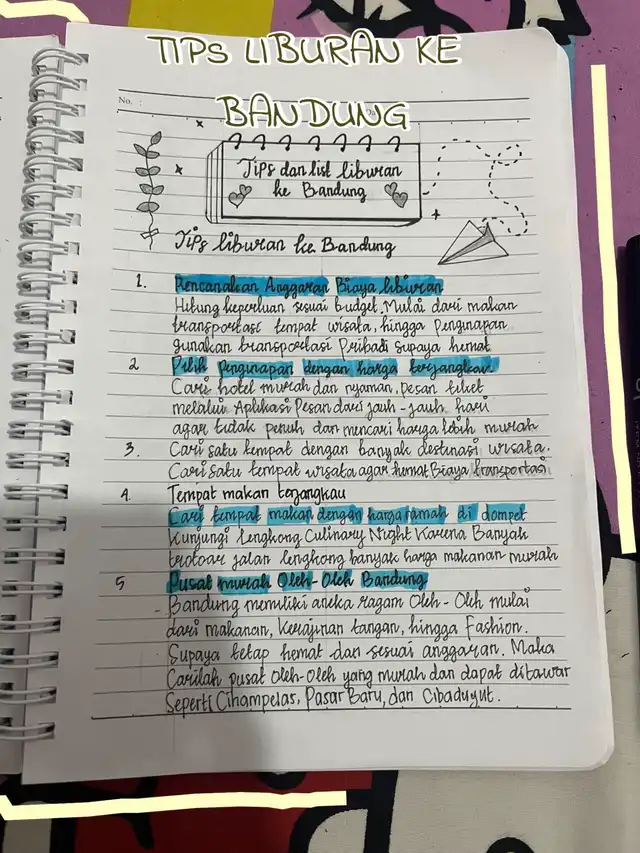 TIPS LIBURAN KE
BANDUNG
No. :
Tips dan list liburan
ke Bandung
Tips liburan ke Bandung
1. Rencanakan Anggaran Biaya liburan
Hitung keperluan sesuai budget. Mulai dari makan
transportasi tempat wisata, hingga penginapan
gunakan transportasi Pribadi supaya hemat
2 Pilih penginapan dengan harga terjangkau
Cari hotel murah dan nyaman, pesan tiket
melalui Aplikasi Pesan dari jauh-jauh hari
agar tidak penuh dan mencari harga lebih murah
3. Cari satu tempat dengan banyak destinasi wisata.
Cari satu tempat wisata agar hemat Biaya transportasi
4. Tempat makan terjangkau
Cari tempat makan dengan harga ramah di dompet
Kunjungi lengkong Culinary Night Karena Banyak
trotoar jalan lengkong banyak harga makanan murah
5 Pusat murah Oleh-Oleh Bandung
- Bandung memiliki aneka ragam Oleh-Oleh mulai
dari makanan, Kerajinan tangan, hingga Fashion.
Supaya tetap hemat dan sesuai anggaran. Maka
Carilah pusat Oleh-Oleh yang murah dan dapat ditawar
Seperti Cihampelas, Pasar Baru, dan Cibaduyut.